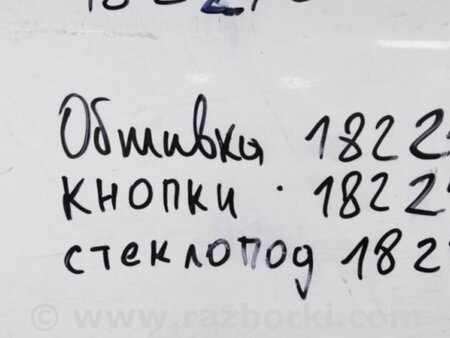 Обшивка 1822
кнопки · 1822
стеклопод 182
© www.razborki.com